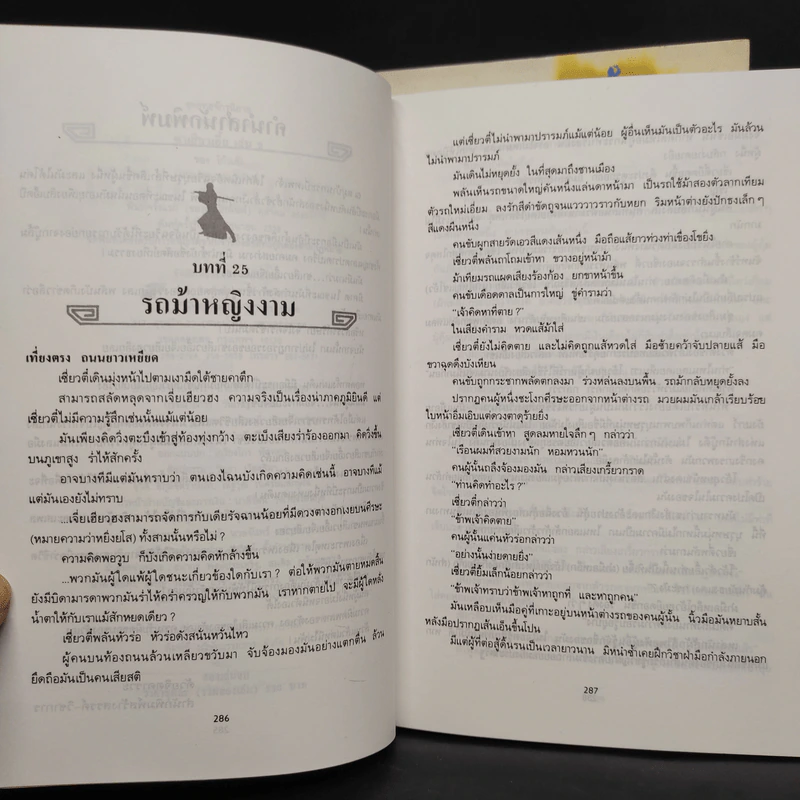 บทที่ 25
รถม้าหญิงงาม
เที่ยงตรง ถนนยาวเหยียด
เซี่ยวตี่เดินมุ่งหน้าไปตามเงามืดใต้ชายคาตึก
สามารถสลัดหลุดจากเจี่ยเฮียวฮง ความจริงเป็นเรื่องน่าภาคภูมิยินดี แต่
เซี่ยวตี่ไม่มีความรู้สึกเช่นนั้นแม้แต่น้อย
มันเพียงคิดวิ่งตะบึงเข้าสู่ท้องทุ่งกว้าง ตะเบ็งเสียงร่ำร้องออกมา คิดวิ่งขึ้น
บนภูเขาสูง ร่ำไห้สักครั้ง
อาจบางทีมีแต่มันทราบว่า ตนเองไฉนบังเกิดความคิดเช่นนี้ อาจบางทีแม้
แต่มันเองยังไม่ทราบ
...เจี่ยเฮียวฮงสามารถจัดการกับเดียรัจฉานน้อยที่มีดวงตางอกเงยบนศีรษะ
(หมายความว่าหยิ่งยโส) ทั้งสามนั้นหรือไม่ ?
ความคิดพอวูบ ก็บังเกิดความคิดหักล้างขึ้น
...พวกมันผู้ใดแพ้ผู้ใดชนะเกี่ยวข้องใดกับเรา ? ต่อให้พวกมันตายหมดสิ้น
ยังมีบิดามารดาพวกมันร่ำไห้คร่ำครวญให้กับพวกมัน เราหากตายไป จะมีผู้ใดหลั่ง
น้ำตาให้กับเราแม้สักหยดเดียว ?
เซี่ยวตี่พลันหัวร่อ หัวร่อดังสนั่นหวั่นไหว
ผู้คนบนท้องถนนล้วนเหลียวขวับมา จับจ้องมองมันอย่างแตกตื่น ล้วน
ยึดถือมันเป็นคนเสียสติ
286
แต่เซี่ยวตี่ไม่นำพามาปรารมภ์แม้แต่น้อย ผู้อื่นเห็นมันเป็นตัวอะไร มันล้วน
ไม่นำพามาปรารมภ์
มันเดินไม่หยุดยั้ง ในที่สุดมาถึงชานเมือง
พลันเห็นรถขนาดใหญ่คันหนึ่งแล่นตาหน้ามา เป็นรถใช้ม้าสองตัวลากเทียม
ตัวรถใหม่เอี่ยม ลงรักสีดำขัดถูจนแวววาวราวกับหยก ริมหน้าต่างยังปักธงเล็ก ๆ
สีแดงผืนหนึ่ง
คนขับผูกสายรัดเอวสีแดงเส้นหนึ่ง มือถือแส้ยาวท่วงท่าเขื่องโขยิ่ง
เซี่ยวตี่พลันถาโถมเข้าหา ขวางอยู่หน้าม้า
ม้าเทียมรถแผดเสียงร้องก้อง ยกขาหน้าขึ้น
คนขับเดือดดาลเป็นการใหญ่ ขู่คำรามว่า
"เจ้าคิดหาที่ตาย ?"
ในเสียงคำราม หวดแส้ม้าใส่
เซี่ยวตี่ยังไม่คิดตาย และไม่คิดถูกแส้หวดใส่ มือซ้ายคว้าจับปลายแส้ มือ
ขวาฉุดดึงบังเหียน
คนขับถูกกระชากพลัดตกลงมา ร่วงหล่นลงบนพื้น รถม้ากลับหยุดยั้งลง
ปรากฏคนผู้หนึ่งชะโงกศีรษะออกจากหน้าต่างรถ มวยผมมันเกล้าเรียบร้อย
ใบหน้าอิ่มเอิบแต่ดวงตาดุร้ายยิ่ง
เซี่ยวตี่เดินเข้าหา สูดลมหายใจลึก ๆ กล่าวว่า
"เรือนผมที่สวยงามนัก หอมหวนนัก"
คนผู้นั้นถลึงจ้องมองมัน กล่าวเสียงเกรี้ยวกราด
"ท่านคิดทำอะไร ?"
เซี่ยวตี่กล่าวว่า
"ข้าพเจ้าคิดตาย"
คนผู้นั้นแค่นหัวร่อกล่าวว่า
"อย่างนั้นง่ายดายยิ่ง"
เซี่ยวตี่ยิ้มเล็กน้อยกล่าวว่า
"ข้าพเจ้าทราบว่าข้าพเจ้าหาถูกที่ และหาถูกคน"
มันเหลือบเห็นมือคู่ที่เกาะอยู่บนหน้าต่างรถของคนผู้นั้น นิ้วมือมันหยาบสั้น
หลังมือปรากฏเส้นเอ็นขึ้นโปน
มีแต่ผู้ที่ต่อสู้ดิ้นรนเป็นเวลายาวนาน มิหนำซ้ำเคยฝึกวิชาฝ่ามือกำลังภายนอก
287